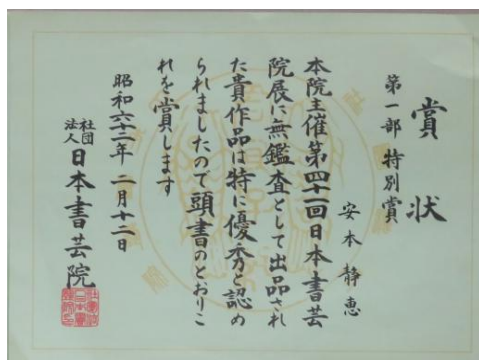 賞状
第一部 特別賞
安本静恵
本院主催第四十一回日本書芸
院展に無鑑査として出品され
た貴作品は特に優秀と認め
られましたので頭書のとおりこ
れを賞します
昭和六十二年 二月十二日
社団法人 日本書芸院